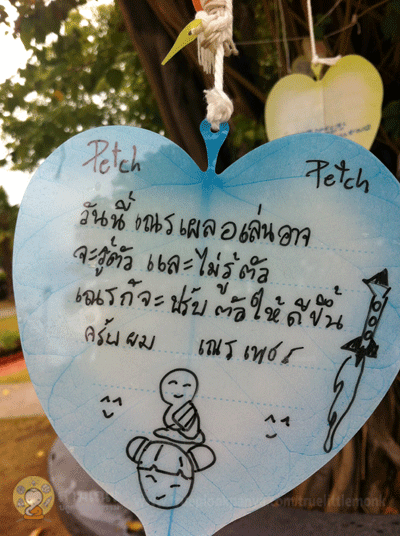 Petch
Petch
วันนี้เณรเผลอเล่นอาจ
จะรู้ตัว และไม่รู้ตัว
เณรก้จะปรับตัวให้ดีขึ้น
ครับผม เณรเพชร